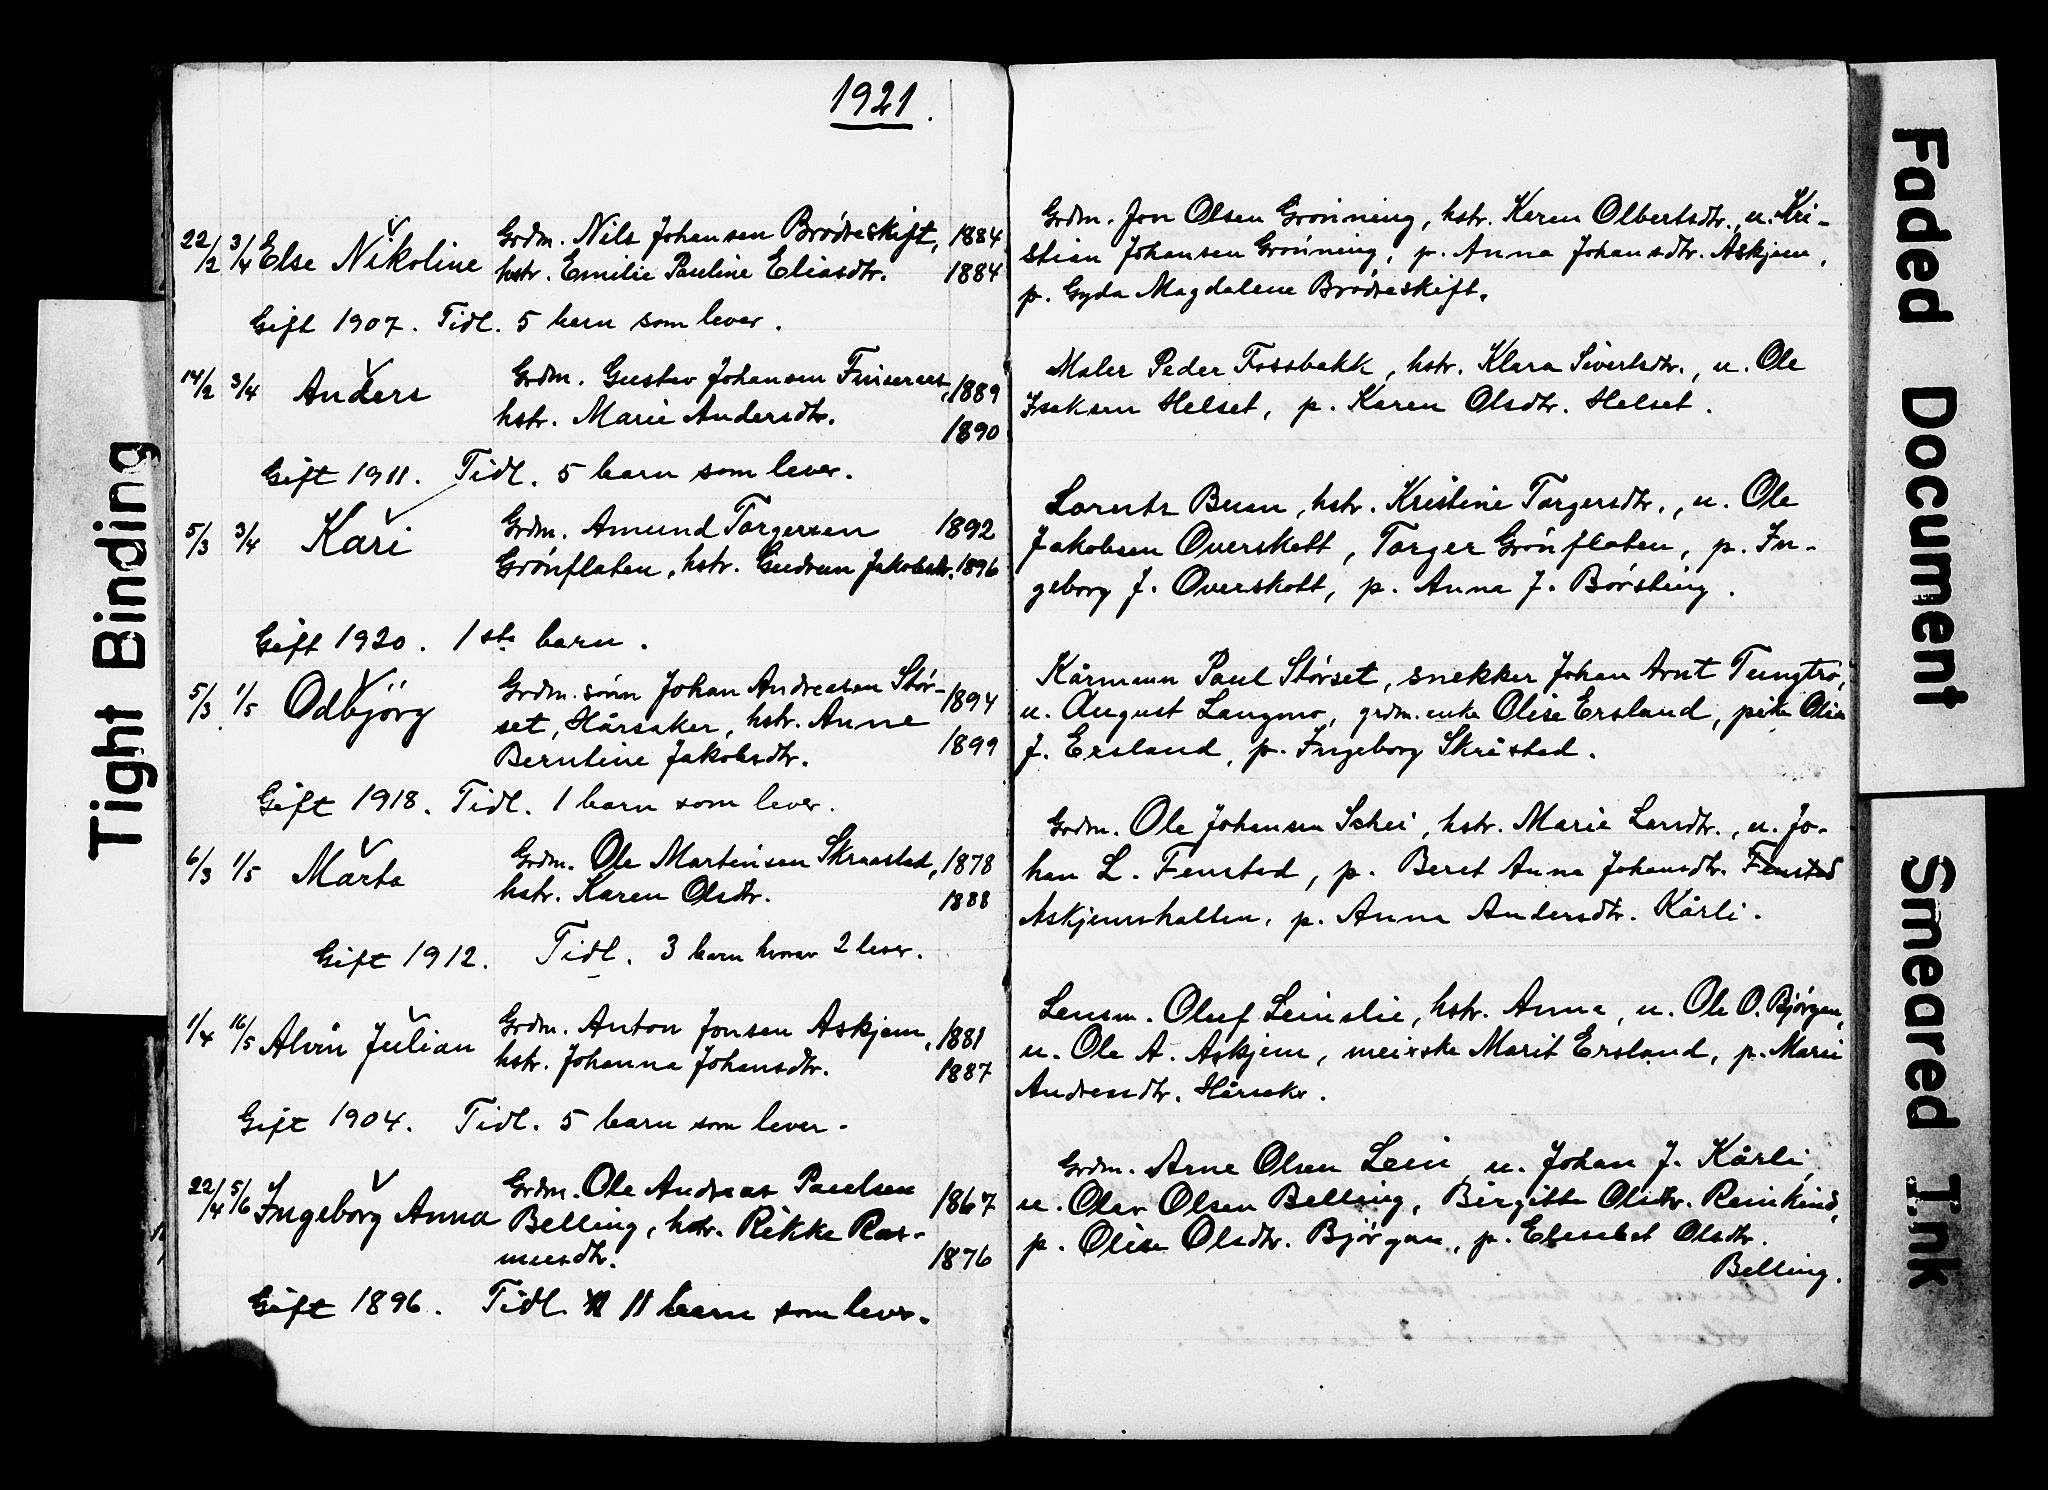 1921.
22/2 3/4 Else Nikoline Grdm. Nils Johansen Brødreskift, 1884
hstr. Emilie Pauline Eliasdtr. 1884
Gift 1907. Tidl. 5 barn som lever.
14/2 3/4 Anders Grdm. Gustav Johansen 1889
hstr. Marie Andersdtr. 1890
Gift 1911. Tidl. 5 barn som lever.
5/3 3/4 Kari Grdm. Amund Torgersen 1892
Grønflaten, hstr. Gudrun Jakobsdtr. 1896
Gift 1920. 1ste barn.
5/3 1/5 Odbjörg Grdm. sønn Johan Andreasen Stör- 1894
set, Hårsaker, hstr. Anne
Berntine Jakobsdtr. 1899
Gift 1918. Tidl. 1 barn som lever.
6/3 1/5 Marta Grdm. Ole Martinsen Skraastad, 1878
hstr. Karen Olsdtr. 1888
Gift 1912. Tidl. 3 barn hvorav 2 lever.
1/4 16/5 Alvin Julian Grdm. Anton Jonsen Askjem, 1881
hstr. Johanna Johansdtr. 1887
Gift 1904. Tidl. 5 barn som lever.
22/4 5/6 Ingeborg Anna Grdm. Ole Andreas Paulsen 1867
Belling, hstr. Rikke Ras-
musdtr. 1876
Gift 1896. Tidl. 11 barn som lever.
Grdm. Jon Olsen Grønning, hstr. Karen Olbertsdtr., u. Kri-
stian Johansen Grønning, p. Anna Johansdtr. Askjem,
p. Gyda Magdalene Brødreskift.
Maler Peder Fossbakk, hstr. Klara Sivertsdtr., u. Ole
Isaksen Helset, p. Karen Olsdtr. Helset.
Lorntz Buan, hstr. Kristine Torgersdtr., u. Ole
Jakobsen Overskott, Torger Grønflaten, p. In-
geborg J. Overskott, p. Anna J. Børsting.
Kårmann Paul Størset, snekker Johan Arnt Tungtrø,
u. August Langmo, grdm.enke Olise Ersland, pike Olia
J. Ersland, p. Ingeborg Skristad.
Grdm. Ole Johansen Schei, hstr. Marie Larsdtr., u. Jo-
han L. Fenstad, p. Beret Anna Johansdtr. Fenstad
Askjemshalten, p. Anna Andersdtr. Kårli.
Lensm. Oluf Leinslie, hstr. Anna, u. Ole O. Bjørgan,
u. Ole A. Askjem, meierske Marit Ersland, p. Marie
Andreasdtr. Hårsaker.
Grdm. Arne Olsen Lein, u. Johan J. Kårli,
u. Olav Olsen Belling, Birgitte Olsdtr. Reinkind,
p. Olise Olsdtr. Bjørgan, p. Elisabet Olsdtr.
Belling.
Tight Binding
Faded Document
Smeared Ink